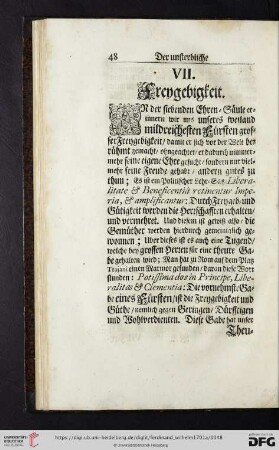 48 Der unsterbliche
VII.
Freygebigkeit.
IN der siebenden Ehren-Säule er-
innern wir uns unseres weiland
mildreichesten Fürsten gros-
ser Freygebigkeit / damit er sich vor der Welt be-
rühmt gemacht / ohngeachtet er dadurch nimmer-
mehr seine eigene Ehre gesucht / sondern nur viel-
mehr seine Freude gehabt / andern gutes zu
thun; Es ist ein Politischer Lehr-Satz: Libera-
litate & Beneficentiâ retinentur Impe-
ria, & amplificantur: Durch Freygeb- und
Gütigkeit werden die Herrschafften erhalten /
und vermehret. Und diesem ist gewiß also / die
Gemüther werden hierdurch gemeiniglich ge-
wonnen; Uber dieses ist es auch eine Tugend /
welche bey grossen Herren für eine theure Ga-
be gehalten wird; Man hat zu Rom auf dem Platz
Trajani einen Marmor gefunden / daran diese Wort
stunden: Potissima dos in Principe, Libe-
ralitas & Clementia: Die vornehmste Ga-
be eines Fürsten / ist die Freygebigkeit und
Güthe / nemlich gegen Geringen / Dürfftigen
und Wohlverdienten. Diese Gabe hat unser
Theu-
UNIVERSITÄTS-
BIBLIOTHEK
HEIDELBERG
https://digi.ub.uni-heidelberg.de/diglit/ferdinand_wilhelm1701a/0048
Gefördert durch die
DFG